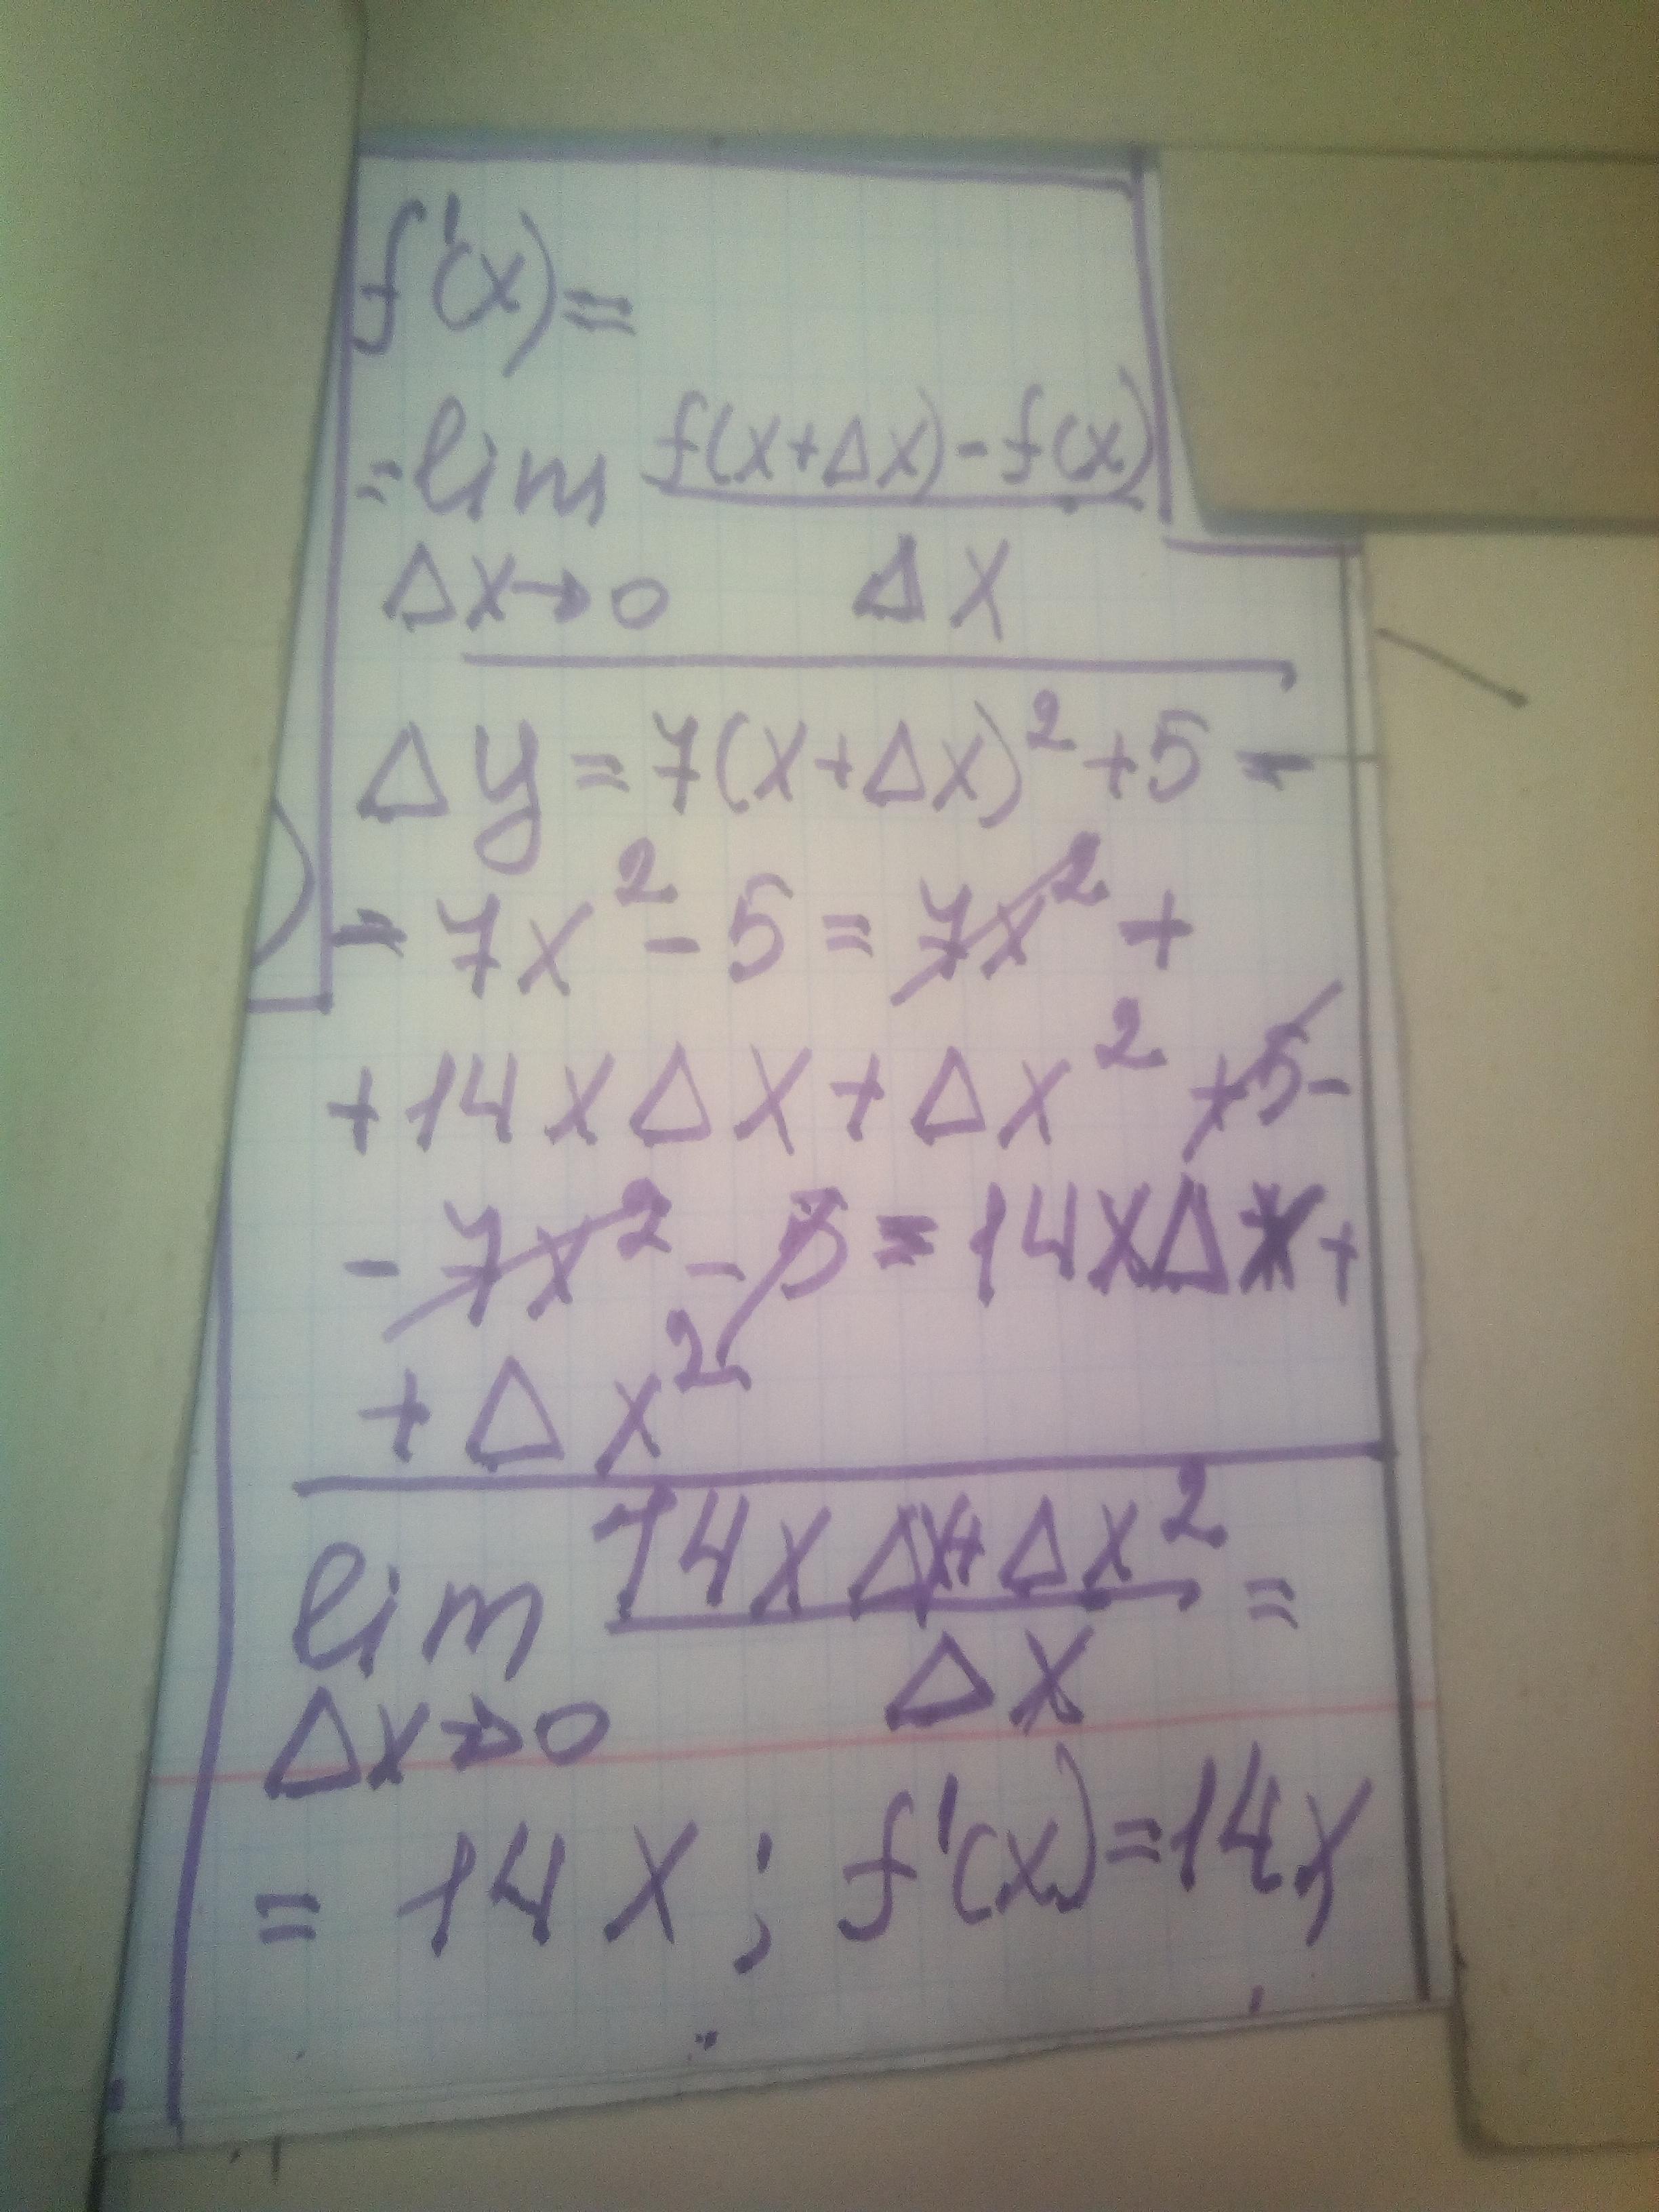 f'(x)=
=lim f(x+Δx)-f(x)
Δx→0 Δx
Δy=7(x+Δx)²+5-
-7x²-5=7x²+
+14xΔx+Δx²+5-
-7x²-5=14xΔx+
+Δx²
lim 14xΔx+Δx² =
Δx→0 Δx
=14x; f'(x)=14x